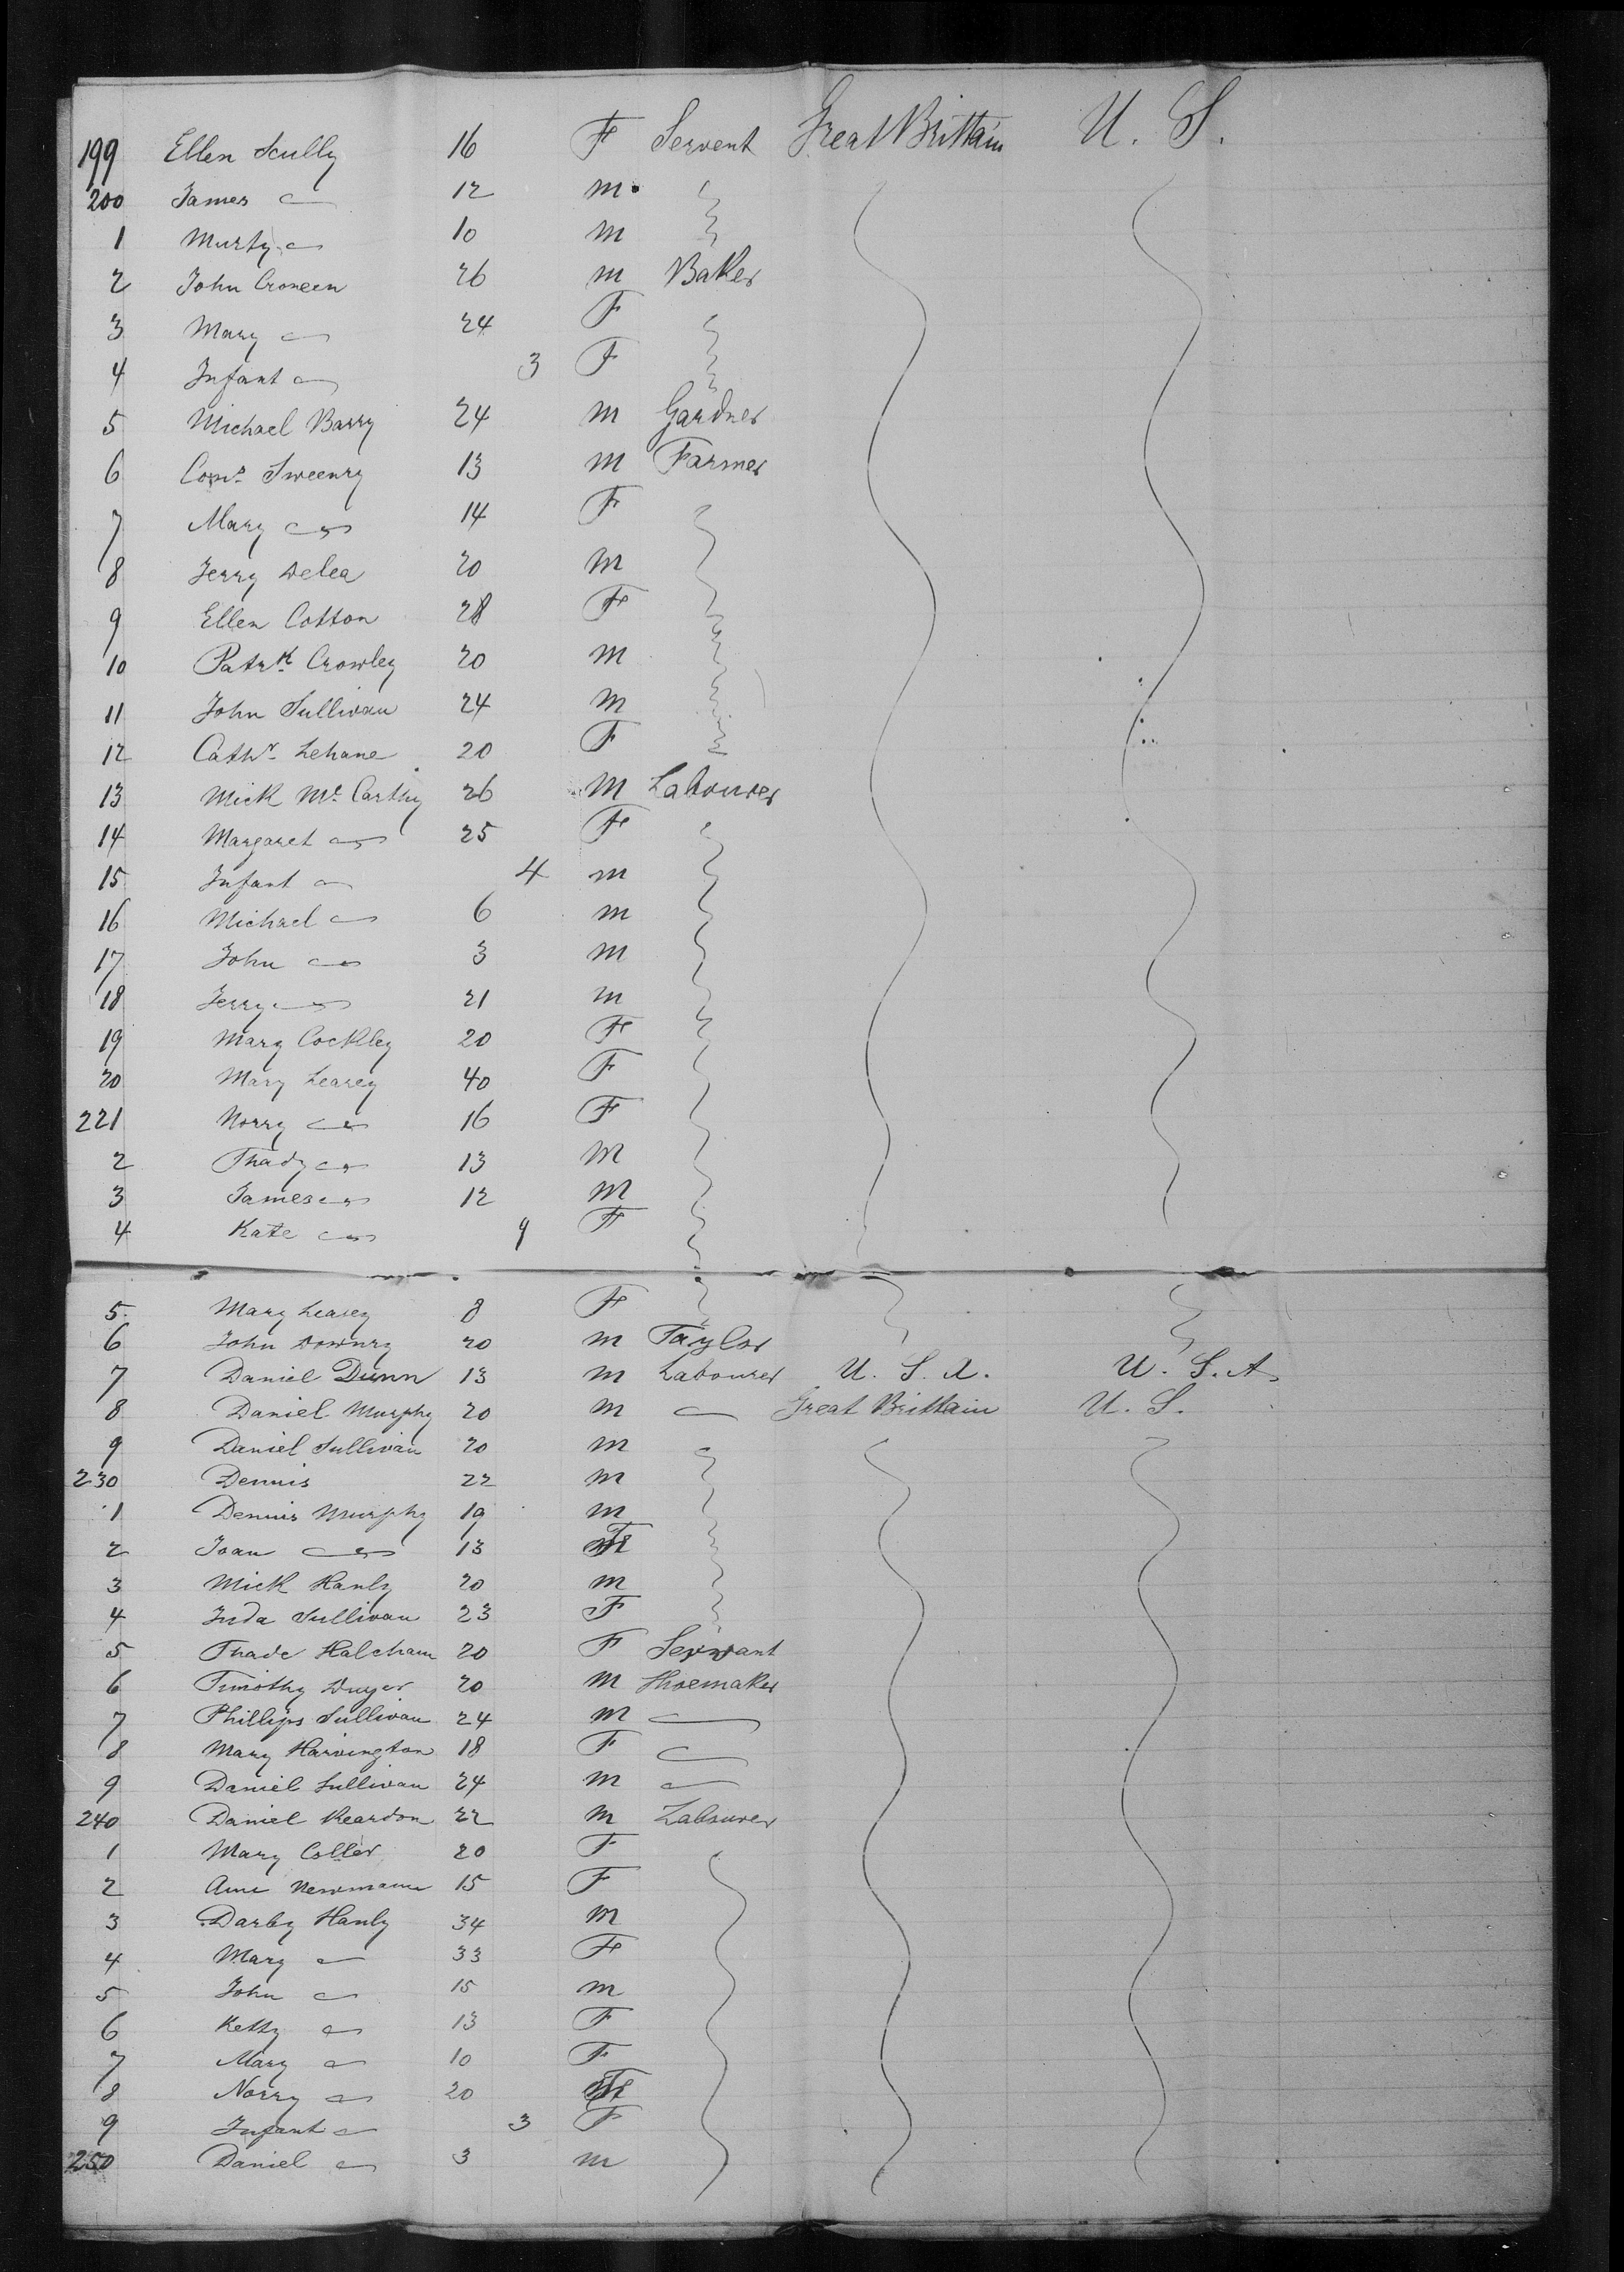 199 Ellen Scully 16 F Servent Great Brittain U. S.
200 James 12 m
1 Murty 10 m
2 John Croneen 26 m Baker
3 Mary 24 F
4 Infant 3 F
5 Michael Barry 24 m Gardner
6 Sweeny 13 m Farmer
7 Mary 14 F
8 Jerry Delea 20 m
9 Ellen Cotton 28 F
10 Patrk Crowley 20 m
11 John Sullivan 24 m
12 Cathn Lehane 20 F
13 Mick Mc Carthy 26 M Labourer
14 Margaret 25 F
15 Infant 4 m
16 Michael 6 m
17 John 3 m
18 Jerry 21 m
19 Mary Cockley 20 F
20 Mary Learey 40 F
221 Norry 16 F
2 Thady 13 M
3 James 12 M
4 Kate 9 F
5 Mary Learey 8 F
6 John Downey 20 m Taylor
7 Daniel Dunn 13 m Labourer U. S. A. U. S. A
8 Daniel Murphy 20 m Great Brittain U. S.
9 Daniel Sullivan 20 m
230 Dennis 22 m
1 Dennis Murphy 19 m
2 Joan 13 F
3 Mick Hanly 20 m
4 Juda Sullivan 23 F
5 Thade 20 F Servant
6 Timothy Dwyer 20 M Shoemaker
7 Phillips Sullivan 24 m
8 Mary Harrington 18 F
9 Daniel Sullivan 24 m
240 Daniel Reardon 22 m Labourer
1 Mary Coller 20 F
2 Ann Newmann 15 F
3 Darby Hanly 34 m
4 Mary 33 F
5 John 15 m
6 Ketty 13 F
7 Mary 10 F
8 Norry 20 F
9 Infant 3 F
250 Daniel 3 m